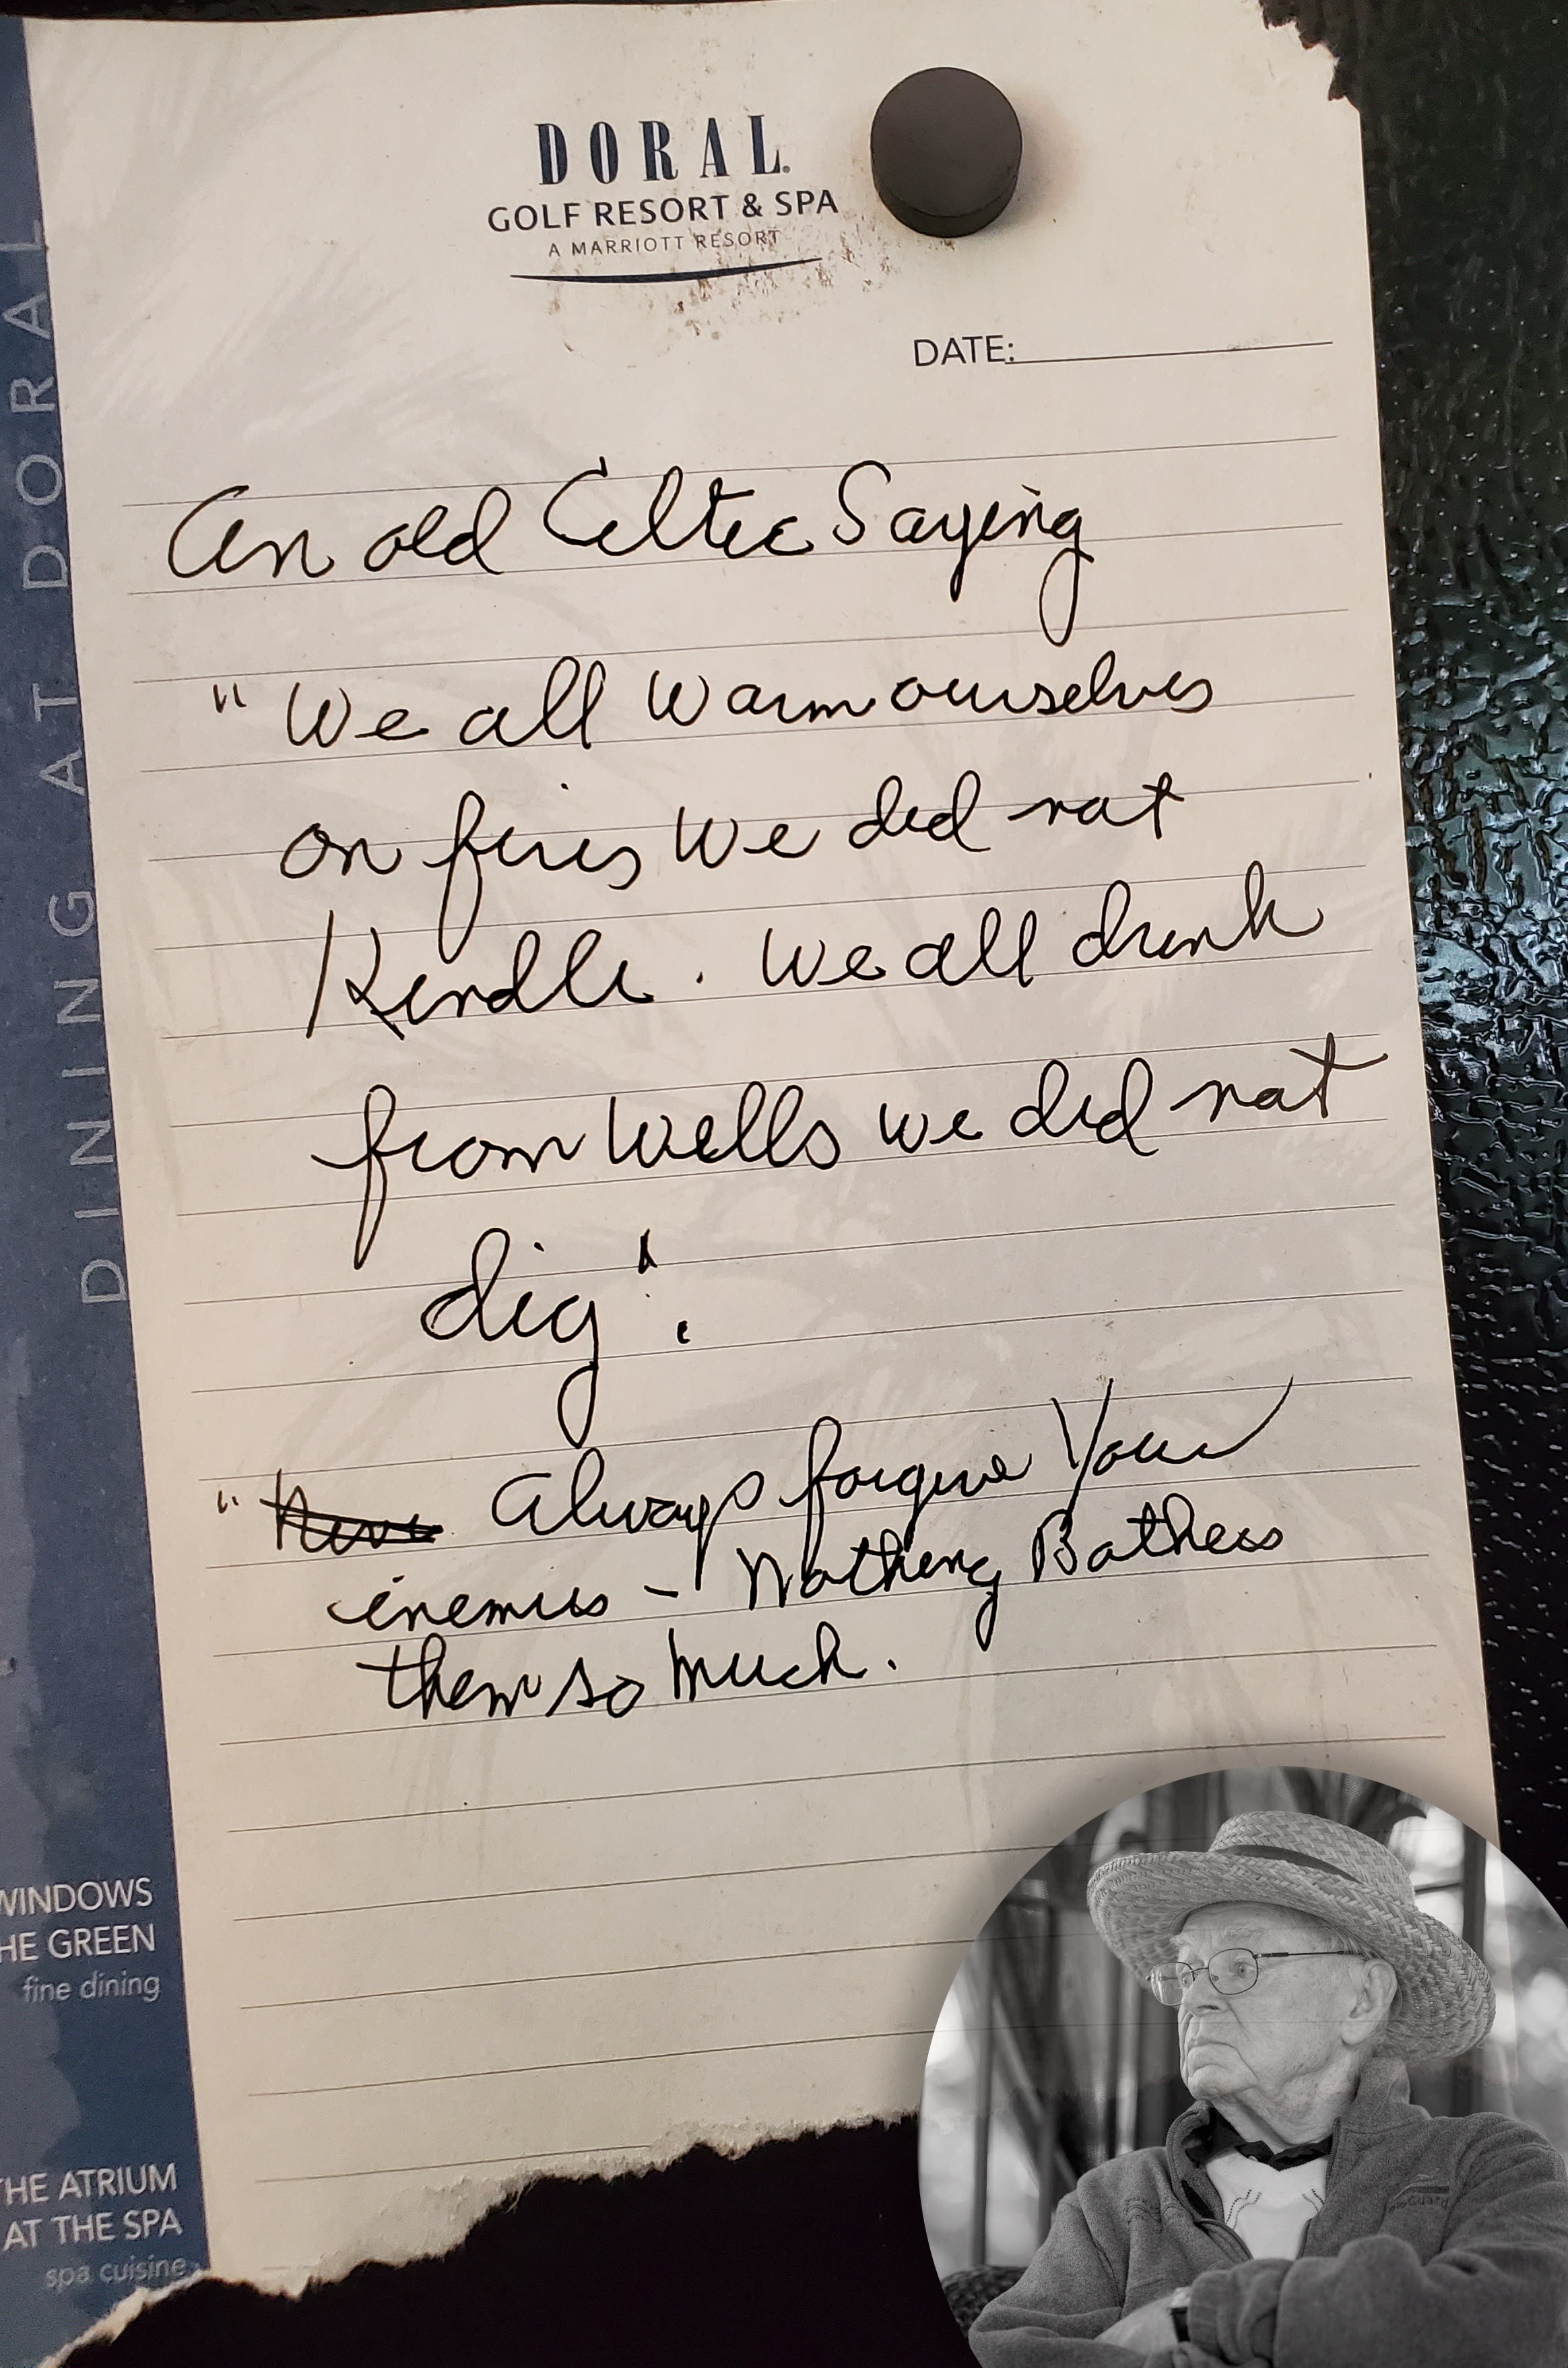 DORAL
GOLF RESORT & SPA
A MARRIOTT RESORT
DATE:
An old Celtic Saying
"We all warm ourselves
on fires we did not
Kindle. We all drink
from wells we did not
dig".
" Always forgive Your
enemies - Nothing Bothers
them so much.
DINING AT DORAL
WINDOWS
HE GREEN
fine dining
THE ATRIUM
AT THE SPA
spa cuisine